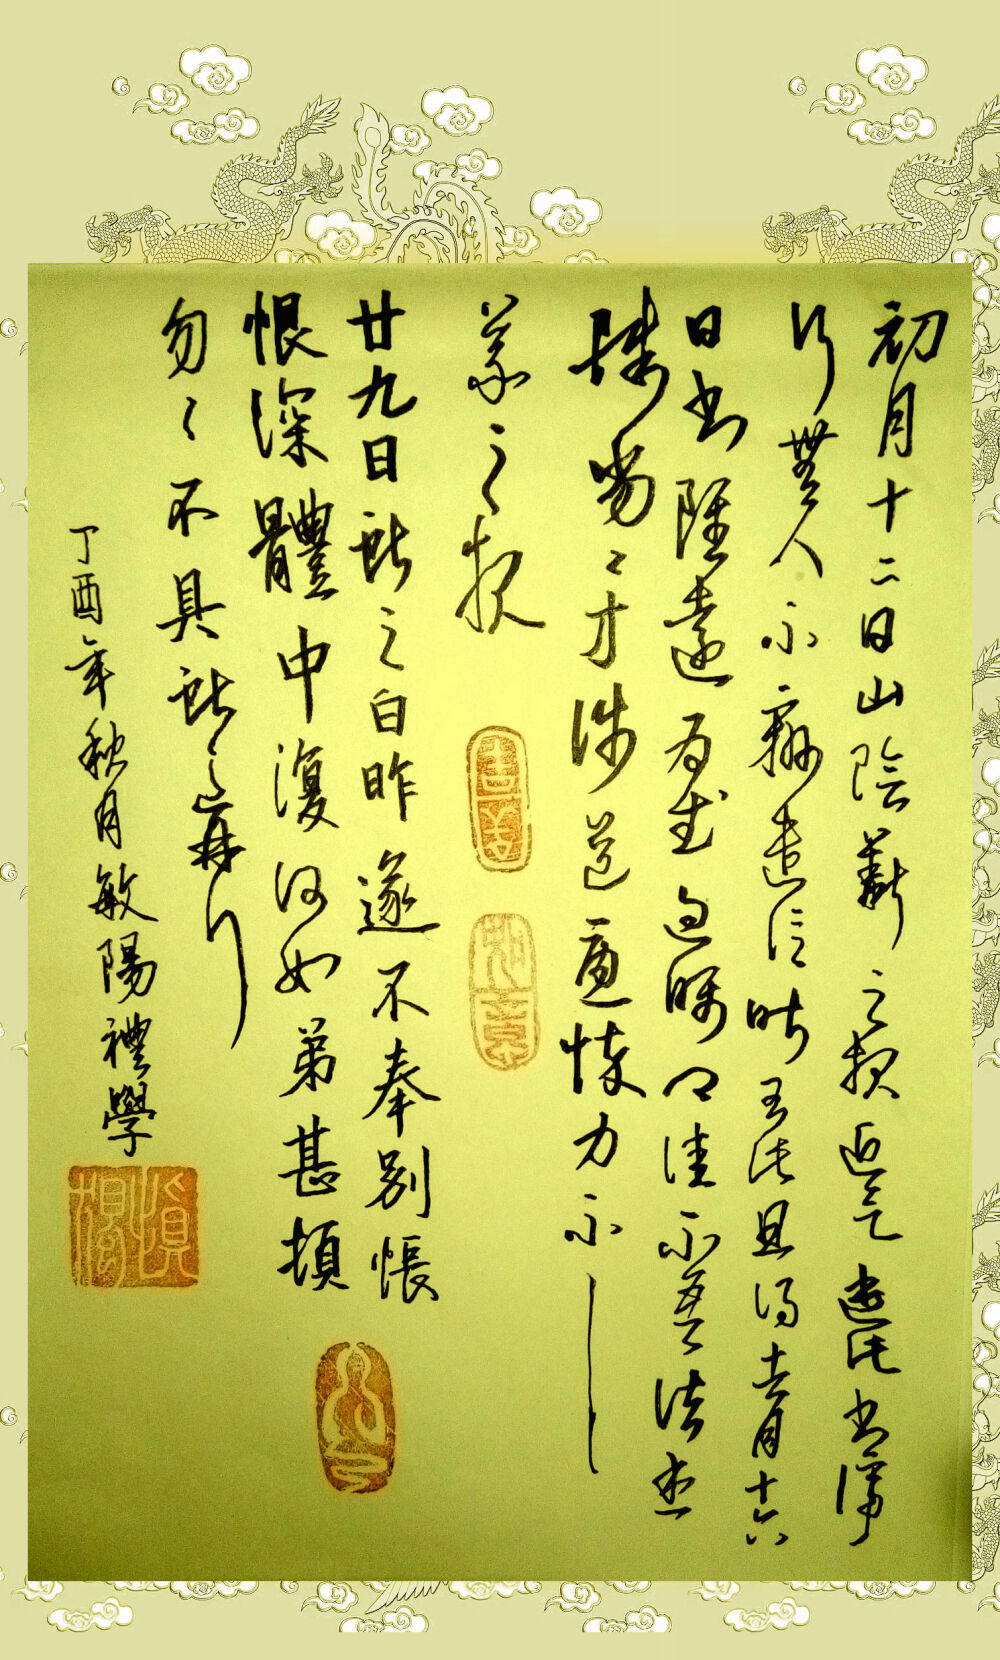 初月十二日山陰羲之報近欲遣此書停
行無人不辦遣信昨至此且得去月十六
日書雖遠為慰過囑卿佳不吾諸患
殊劣〻方涉道憂悴力不
羲之報
廿九日獻之白昨遂不奉別悵
恨深體中復何如弟甚頓
勿〻不具獻之再拜
丁酉年秋月敏陽禮學